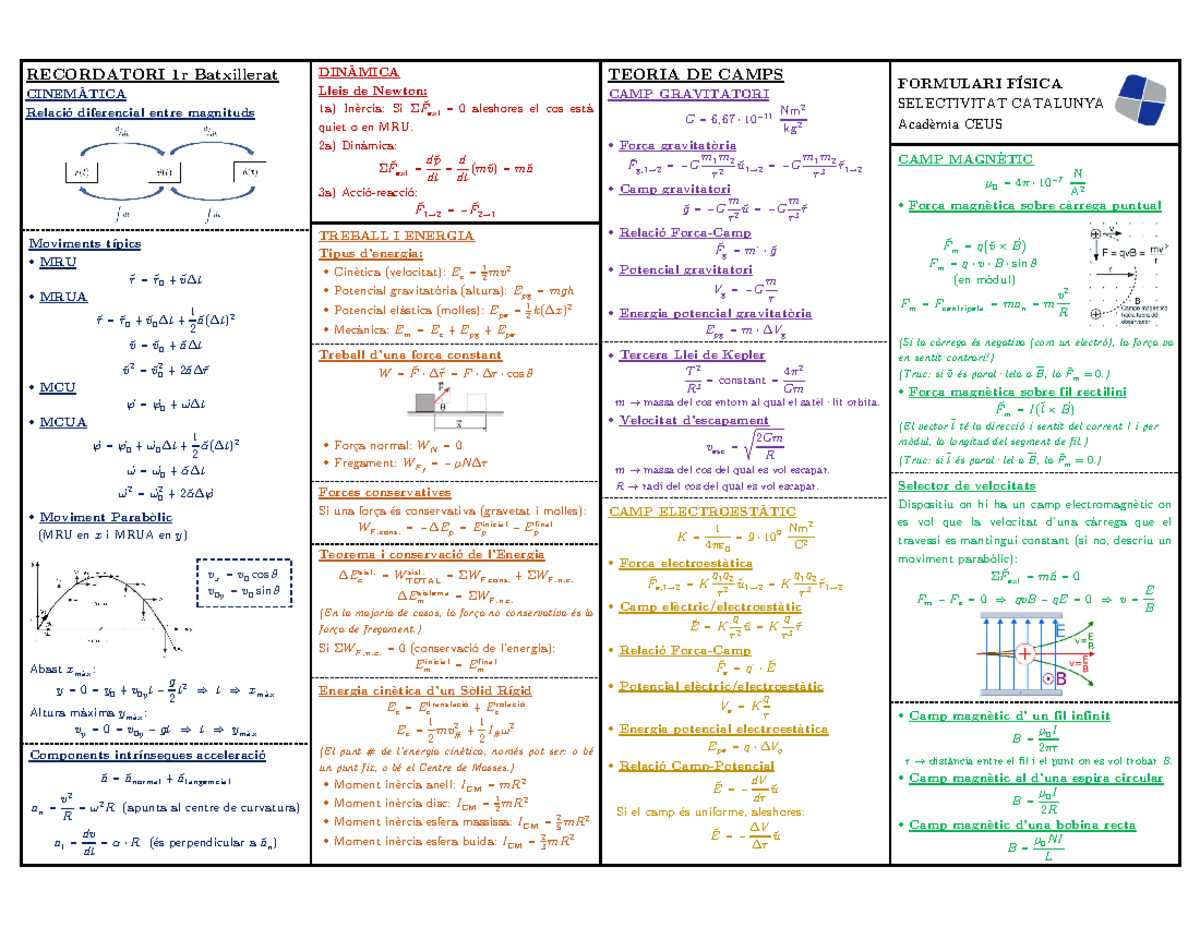 RECORDATORI 1r Batxillerat
CINEMÀTICA
Relació diferencial entre magnituds
d/dt d/dt
r⃗(t) v⃗(t) a⃗(t)
∫ dt ∫ dt
Moviments típics
• MRU
r⃗ = r⃗₀ + v⃗Δt
• MRUA
r⃗ = r⃗₀ + v⃗₀Δt + ½a⃗(Δt)²
v⃗ = v⃗₀ + a⃗Δt
v⃗² = v⃗₀² + 2a⃗Δr⃗
• MCU
φ⃗ = φ⃗₀ + ω⃗Δt
• MCUA
φ⃗ = φ⃗₀ + ω⃗₀Δt + ½α⃗(Δt)²
ω⃗ = ω⃗₀ + α⃗Δt
ω⃗² = ω⃗₀² + 2α⃗Δφ⃗
• Moviment Parabòlic
(MRU en x i MRUA en y)
vₓ = v₀ cos θ
v₀y = v₀ sin θ
Abast x_màx:
y = 0 = y₀ + v₀y t − g/2 t² ⇒ t ⇒ x_màx
Altura màxima y_màx:
v_y = 0 = v₀y − gt ⇒ t ⇒ y_màx
Components intrínseques acceleració
a⃗ = a⃗_normal + a⃗_tangencial
aₙ = v²/R = ω²R (apunta al centre de curvatura)
a_t = dv/dt = α · R (és perpendicular a a⃗ₙ)
DINÀMICA
Lleis de Newton:
1a) Inèrcia: Si ΣF⃗_ext = 0 aleshores el cos està
quiet o en MRU.
2a) Dinàmica:
ΣF⃗_ext = dp⃗/dt = d/dt(mv⃗) = ma⃗
3a) Acció-reacció:
F⃗₁→₂ = −F⃗₂→₁
TREBALL I ENERGIA
Tipus d'energia:
• Cinètica (velocitat): E_c = ½mv²
• Potencial gravitatòria (altura): E_pg = mgh
• Potencial elàstica (molles): E_pe = ½k(Δx)²
• Mecànica: E_m = E_c + E_pg + E_pe
Treball d'una força constant
W = F⃗ · Δr⃗ = F · Δr · cos θ
F⃗
θ
x⃗
• Força normal: W_N = 0
• Fregament: W_Ff = −μNΔr
Forces conservatives
Si una força és conservativa (gravetat i molles):
W_F.cons. = −ΔE_p = E_p^inicial − E_p^final
Teorema i conservació de l'Energia
ΔE_c^sist. = W_TOTAL^sist. = ΣW_F.cons. + ΣW_F.n.c.
ΔE_m^sistema = ΣW_F.n.c.
(En la majoria de casos, la força no conservativa és la
força de fregament.)
Si ΣW_F.n.c. = 0 (conservació de l'energia):
E_m^inicial = E_m^final
Energia cinètica d'un Sòlid Rígid
E_c = E_c^translació + E_c^rotació
E_c = ½mv²_# + ½I_#ω²
(El punt # de l'energia cinètica, només pot ser: o bé
un punt fix, o bé el Centre de Masses.)
• Moment inèrcia anell: I_CM = mR²
• Moment inèrcia disc: I_CM = ½mR²
• Moment inèrcia esfera massissa: I_CM = ⅖mR²
• Moment inèrcia esfera buida: I_CM = ⅔mR²
TEORIA DE CAMPS
CAMP GRAVITATORI
G = 6,67 · 10⁻¹¹ Nm²/kg²
• Força gravitatòria
F⃗_g,1→2 = −G m₁m₂/r² u⃗₁→₂ = −G m₁m₂/r³ r⃗₁→₂
• Camp gravitatori
g⃗ = −G m/r² u⃗ = −G m/r³ r⃗
• Relació Força-Camp
F⃗_g = m' · g⃗
• Potencial gravitatori
V_g = −G m/r
• Energia potencial gravitatòria
E_pg = m · ΔV_g
• Tercera Llei de Kepler
T²/R³ = constant = 4π²/Gm
m → massa del cos entorn al qual el satèl·lit orbita.
• Velocitat d'escapament
v_esc = √(2Gm/R)
m → massa del cos del qual es vol escapar.
R → radi del cos del qual es vol escapar.
CAMP ELECTROESTÀTIC
K = 1/4πε₀ = 9 · 10⁹ Nm²/C²
• Força electroestàtica
F⃗_e,1→2 = K q₁q₂/r² u⃗₁→₂ = K q₁q₂/r³ r⃗₁→₂
• Camp elèctric/electroestàtic
E⃗ = K q/r² u⃗ = K q/r³ r⃗
• Relació Força-Camp
F⃗_e = q' · E⃗
• Potencial elèctric/electroestàtic
V_e = K q/r
• Energia potencial electroestàtica
E_pe = q · ΔV_e
• Relació Camp-Potencial
E⃗ = − dV/dr u⃗
Si el camp és uniforme, aleshores:
E⃗ = − ΔV/Δr u⃗
FORMULARI FÍSICA
SELECTIVITAT CATALUNYA
Acadèmia CEUS
CAMP MAGNÈTIC
μ₀ = 4π · 10⁻⁷ N/A²
• Força magnètica sobre càrrega puntual
F⃗_m = q(v⃗ × B⃗)
F_m = q · v · B · sin θ
(en mòdul)
F_m = F_centrípeta = maₙ = m v²/R
v
F = qvB = mv²/r
r
B
Campo magnético
hacia fuera del
observador
(Si la càrrega és negativa (com un electró), la força va
en sentit contrari!)
(Truc: si v⃗ és paral·lela a B⃗, la F⃗_m = 0.)
• Força magnètica sobre fil rectilini
F⃗_m = I(l⃗ × B⃗)
(El vector l⃗ té la direcció i sentit del corrent I i per
mòdul, la longitud del segment de fil.)
(Truc: si l⃗ és paral·lel a B⃗, la F⃗_m = 0.)
Selector de velocitats
Dispositiu on hi ha un camp electromagnètic on
es vol que la velocitat d'una càrrega que el
travessi es mantingui constant (si no, descriu un
moviment parabòlic):
ΣF⃗_ext = ma⃗ = 0
F_m − F_e = 0 ⇒ qvB − qE = 0 ⇒ v = E/B
E
v≠E/B
v=E/B
B
• Camp magnètic d' un fil infinit
B = μ₀I/2πr
r → distància entre el fil i el punt on es vol trobar B.
• Camp magnètic al d'una espira circular
B = μ₀I/2R
• Camp magnètic d'una bobina recta
B = μ₀NI/L